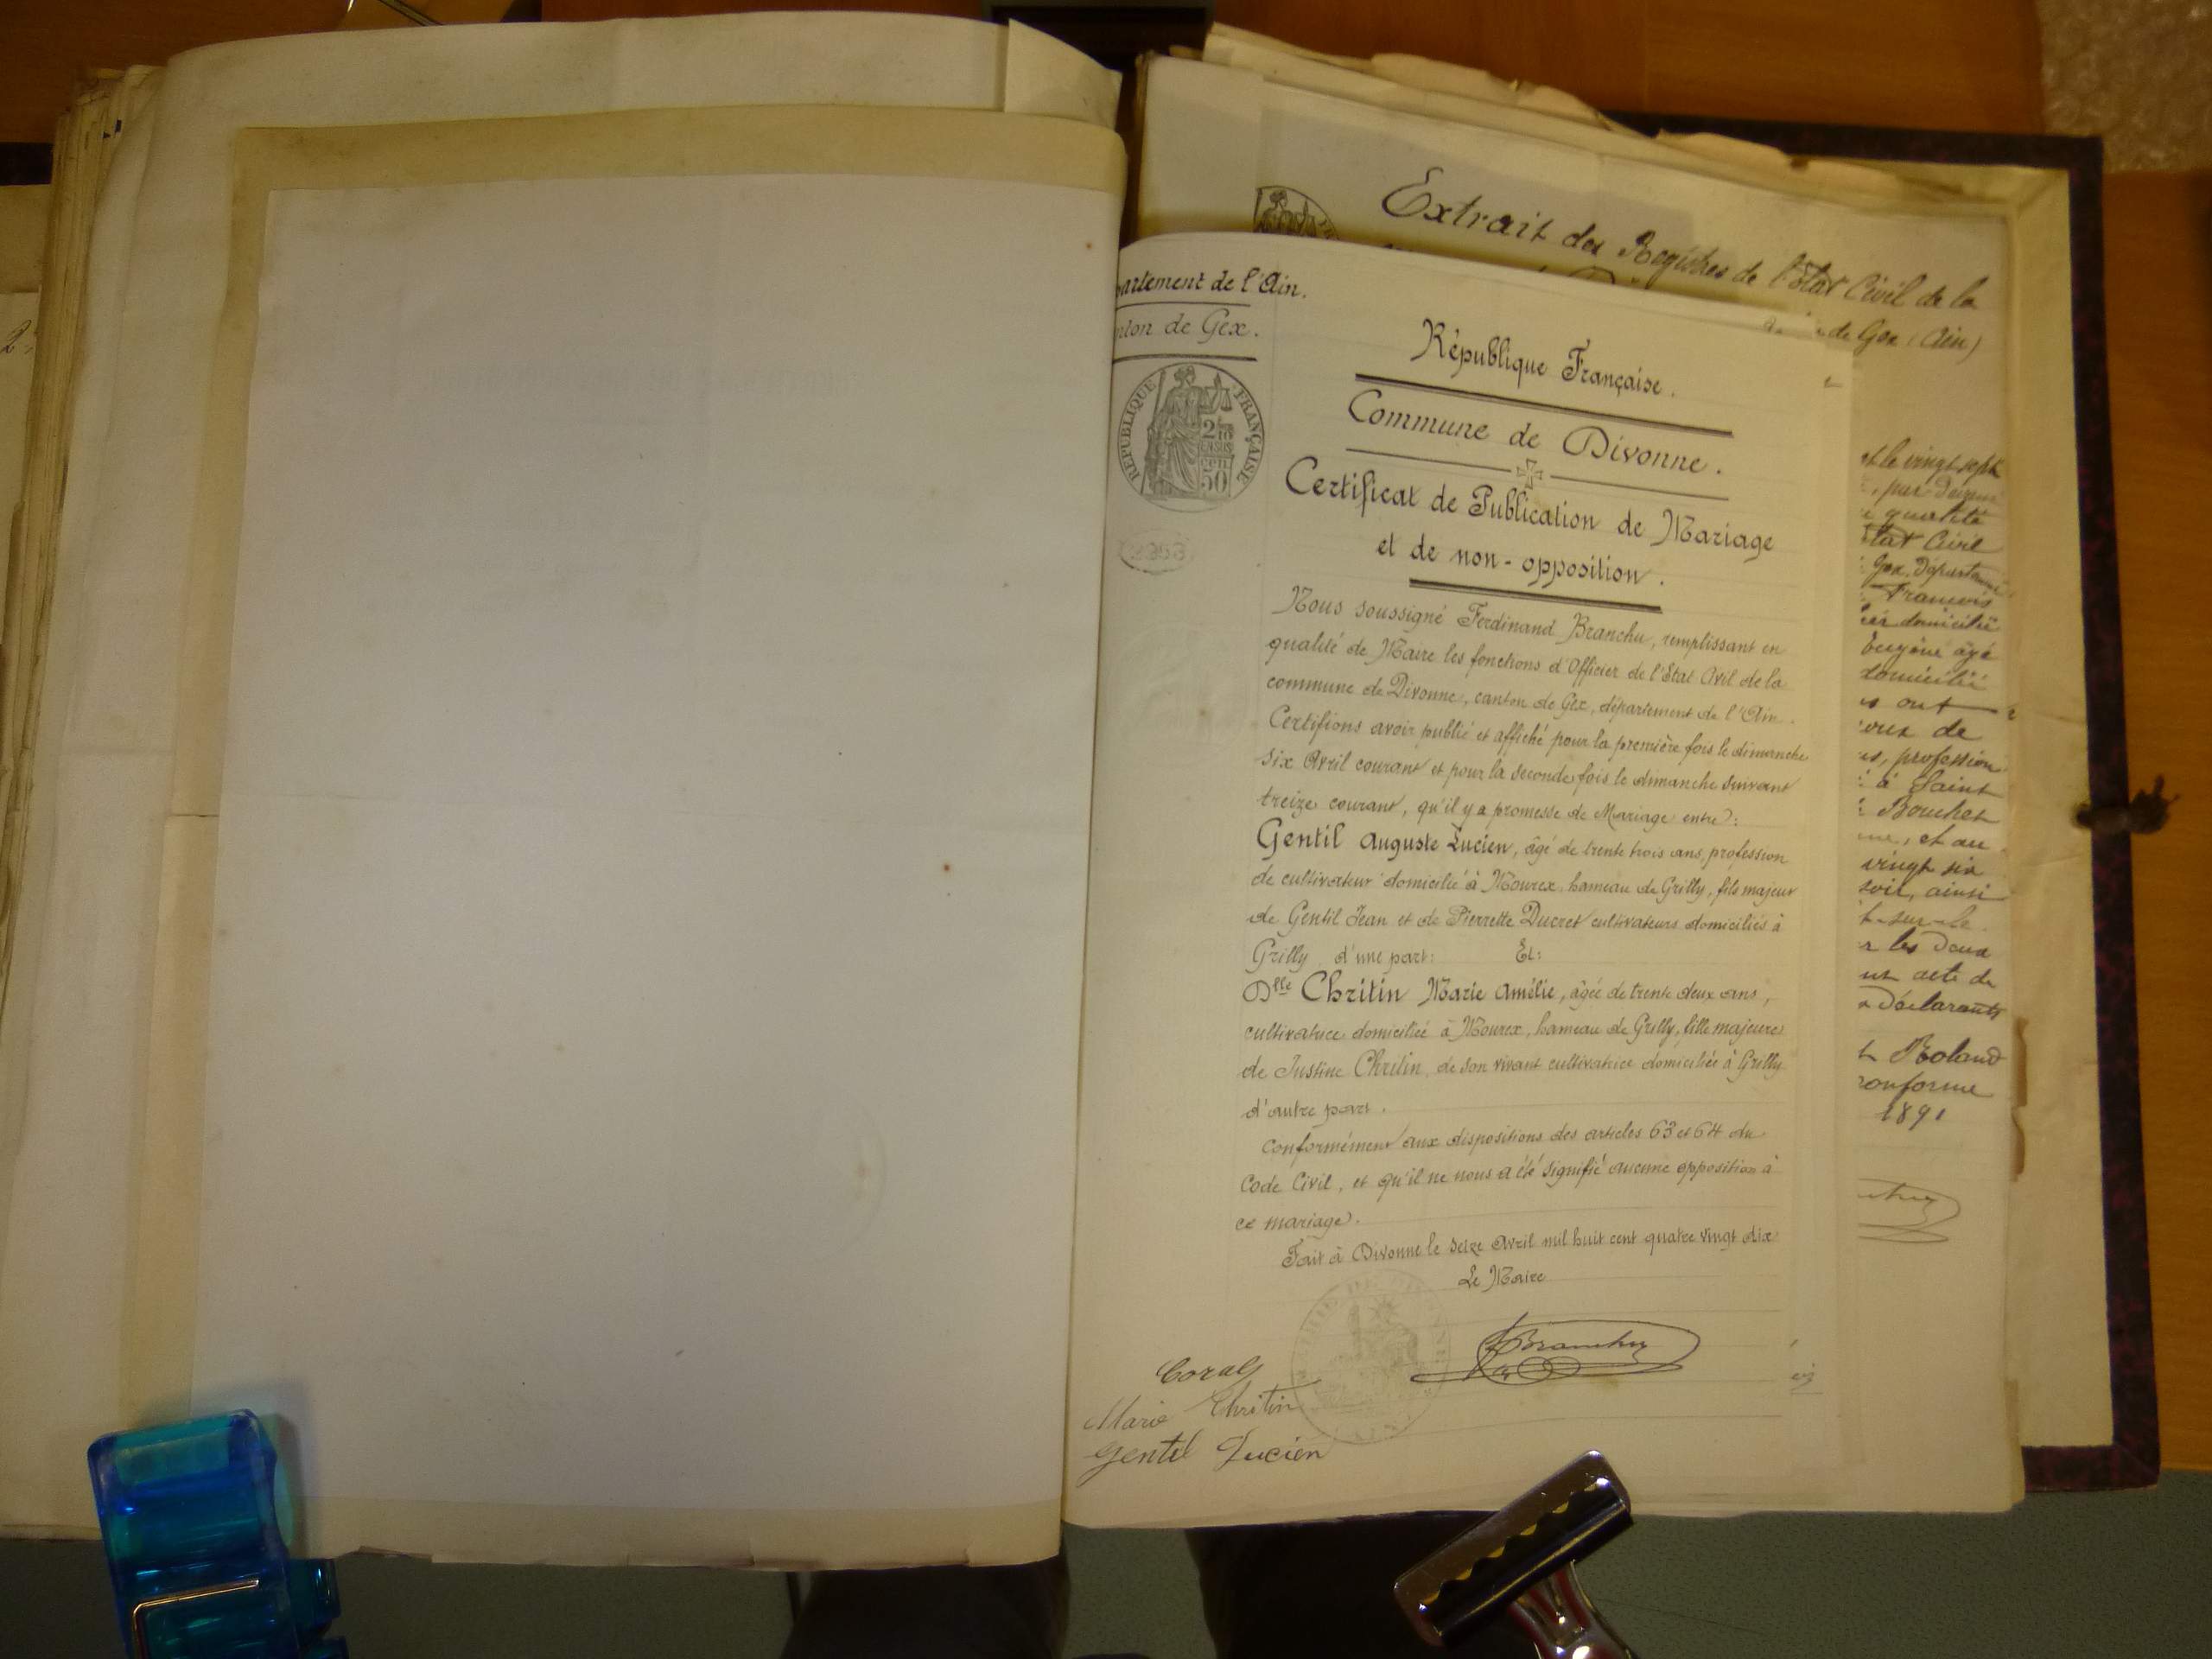 Extrait des Registres de l'État Civil de la
de Gex (Ain)
partement de l'Ain.
nton de Gex.
RÉPUBLIQUE FRANÇAISE
2/10
EN SUS
cen
50
2253
République Française.
Commune de Divonne.
Certificat de Publication de Mariage
et de non-opposition.
Nous soussigné Ferdinand Branchu, remplissant en
qualité de Maire les fonctions d'Officier de l'Etat Civil de la
commune de Divonne, canton de Gex, département de l'Ain.
Certifions avoir publié et affiché pour la première fois le dimanche
six Avril courant et pour la seconde fois le dimanche suivant
treize courant, qu'il y a promesse de Mariage entre:
Gentil Auguste Lucien, âgé de trente trois ans, profession
de cultivateur domicilié à Mourex, hameau de Grilly, fils majeur
de Gentil Jean et de Pierrette Ducret cultivateurs domiciliés à
Grilly d'une part: Et:
Dlle Chritin Marie Amélie, âgée de trente deux ans,
cultivatrice domiciliée à Mourex, hameau de Grilly, fille majeure
de Justine Chritin, de son vivant cultivatrice domiciliée à Grilly
d'autre part.
Conformément aux dispositions des articles 63 et 64 du
Code Civil, et qu'il ne nous a été signifié aucune opposition à
ce mariage.
Fait à Divonne le seize Avril mil huit cent quatre vingt dix
Le Maire
Branchu
MAIRIE DE DIVONNE
(AIN)
Marie Chritin
Gentil Lucien
et le vingt sept
, par devant
qualité
État Civil
Gex, Départem
François
domicilié
Eugène âgé
domicilié
ont
de
, profession
à Saint
Bouchet
, et au
vingt six
soir, ainsi
sur le
les deux
acte de
Déclarants
Roland
conforme
1891